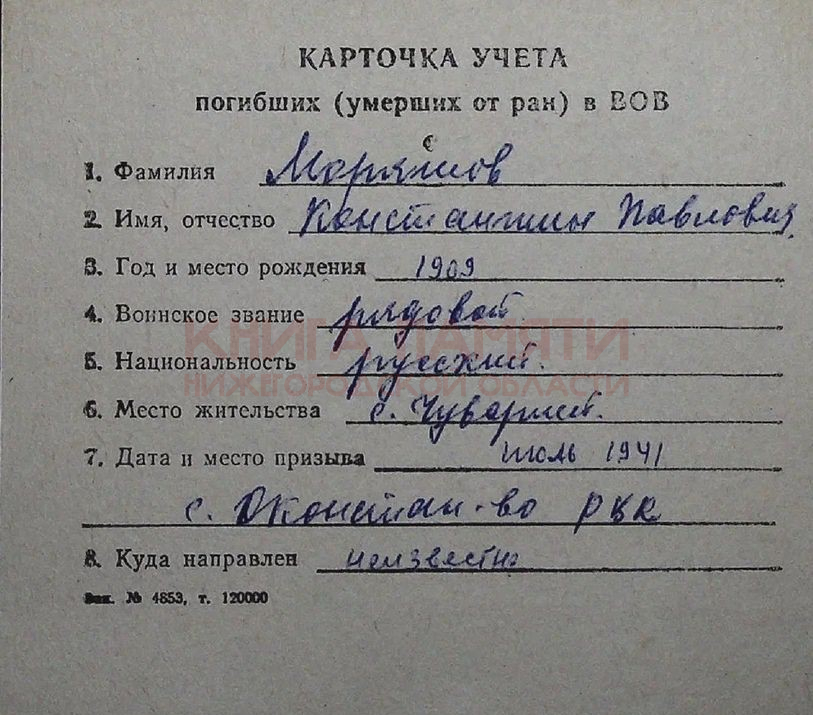 КАРТОЧКА УЧЕТА
погибших (умерших от ран) в ВОВ
1. Фамилия Моряшов
2. Имя, отчество Константин Павлович
3. Год и место рождения 1909
4. Воинское звание рядовой
КНИГА ПАМЯТИ
5. Национальность русский.
НИЖЕГОРОДСКОЙ ОБЛАСТИ
6. Место жительства с. Чуварлей.
7. Дата и место призыва июль 1941
с. Дконстан-во РВК
8. Куда направлен неизвестно
Зак. № 4853, т. 120000